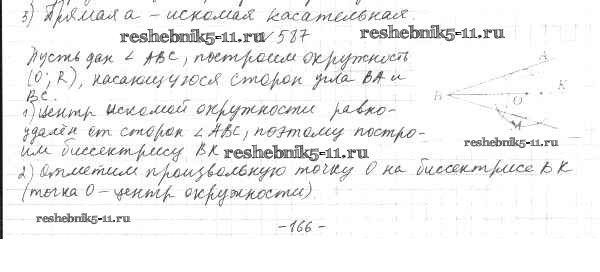 3) Прямая a – искомая касательная
reshebnik5-11.ru
№ 587
Пусть дан ∠ ABC, построим окружность
(O; R), касающуюся сторон угла BA и
BC.
A
B
O
K
M
1) Центр искомой окружности равно-
удалён от сторон ∠ ABC, поэтому постро-
им биссектрису BK
reshebnik5-11.ru
2) Отметим произвольную точку O на биссектрисе BK
(точка O – центр окружности).
reshebnik5-11.ru
–166–